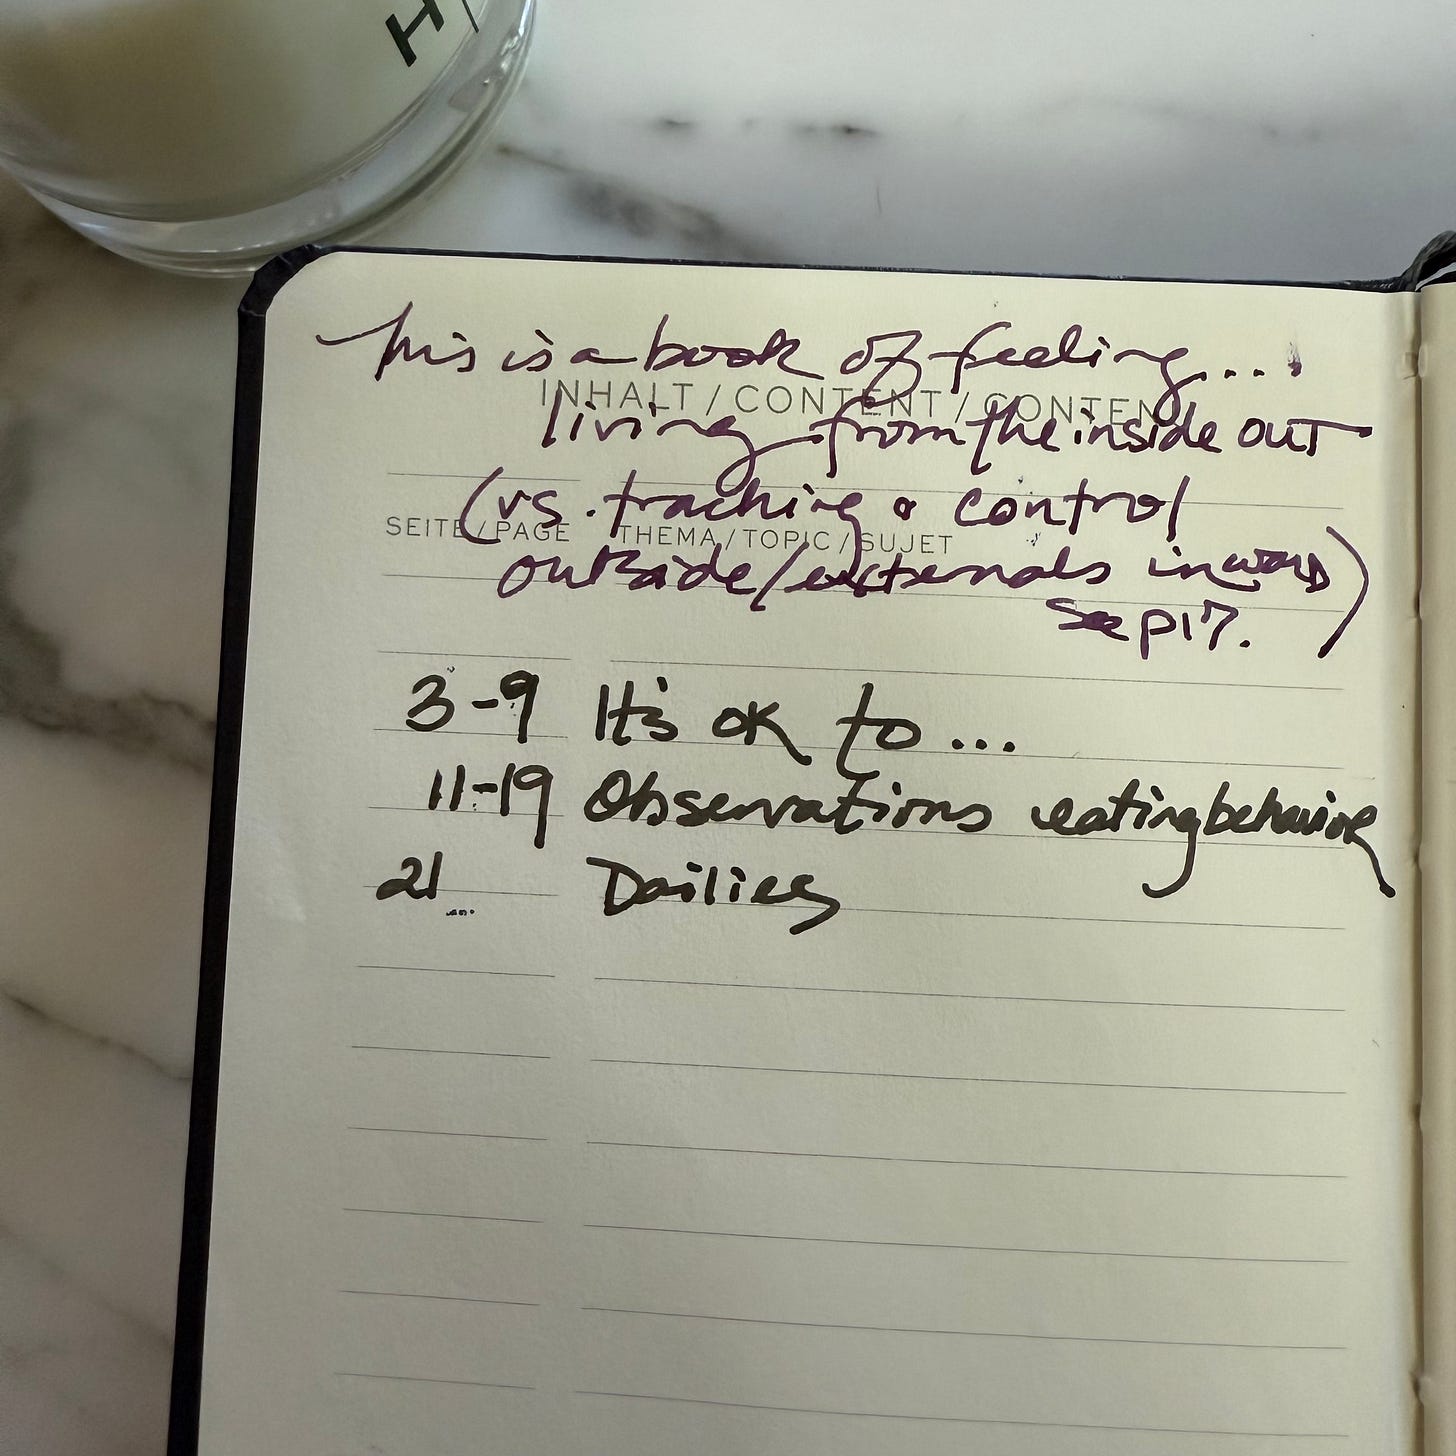 H
This is a book of feeling....
INHALT / CONTENT / CONTENU
living from the inside out
(vs. tracking & control
SEITE / PAGE THEMA / TOPIC / SUJET
outside/externals inward)
See p17.
3-9 It's ok to ...
11-19 Observations eating behavior
21... Dailies